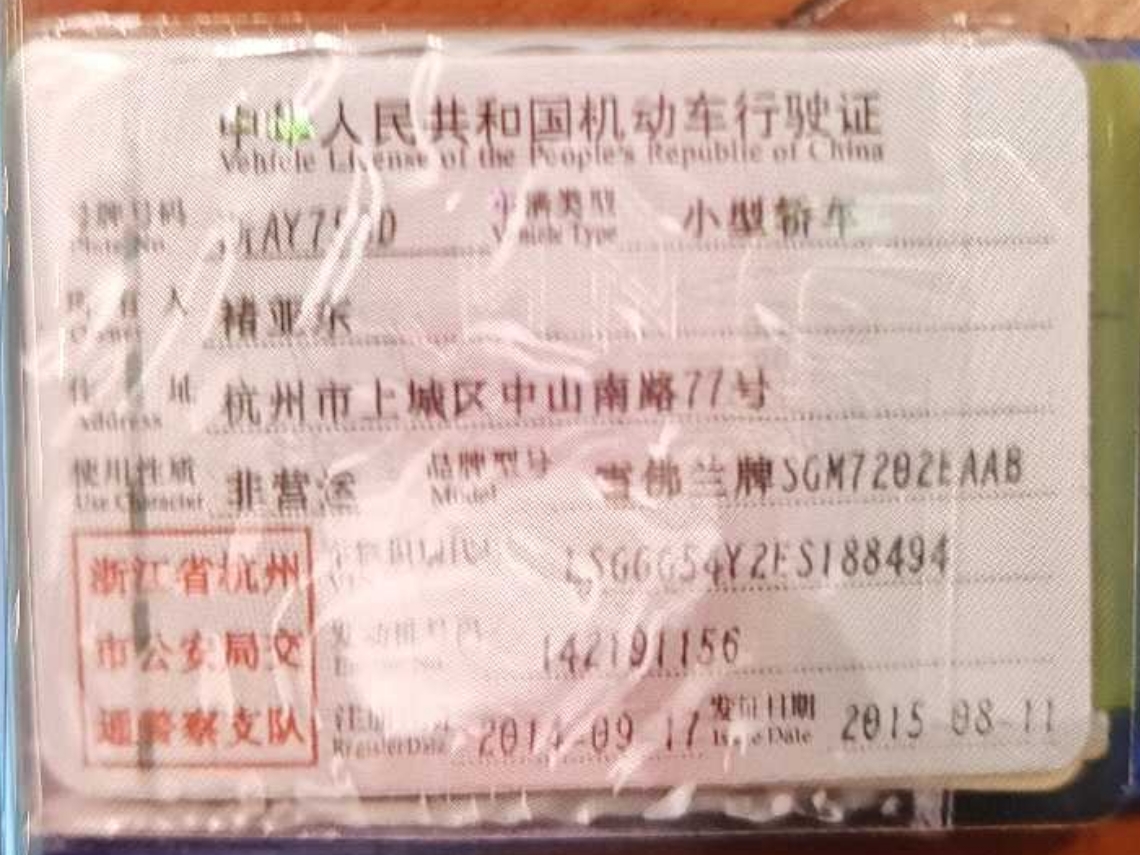 中华人民共和国机动车行驶证
Vehicle License of the People's Republic of China
号牌号码 车辆类型 小型轿车
Plate No. Vehicle Type
所有人 褚亚东
Owner
住址 杭州市上城区中山南路77号
Address
使用性质 非营运 品牌型号 雪佛兰牌SGM7202EAAB
Use Character Model
浙江省杭州
市公安局交
通警察支队
车辆识别代号 LSGGG54Y2ES188494
发动机号码 142191156
Engine No.
注册日期 2014-09-17 发证日期 2015-08-11
Register Date Issue Date